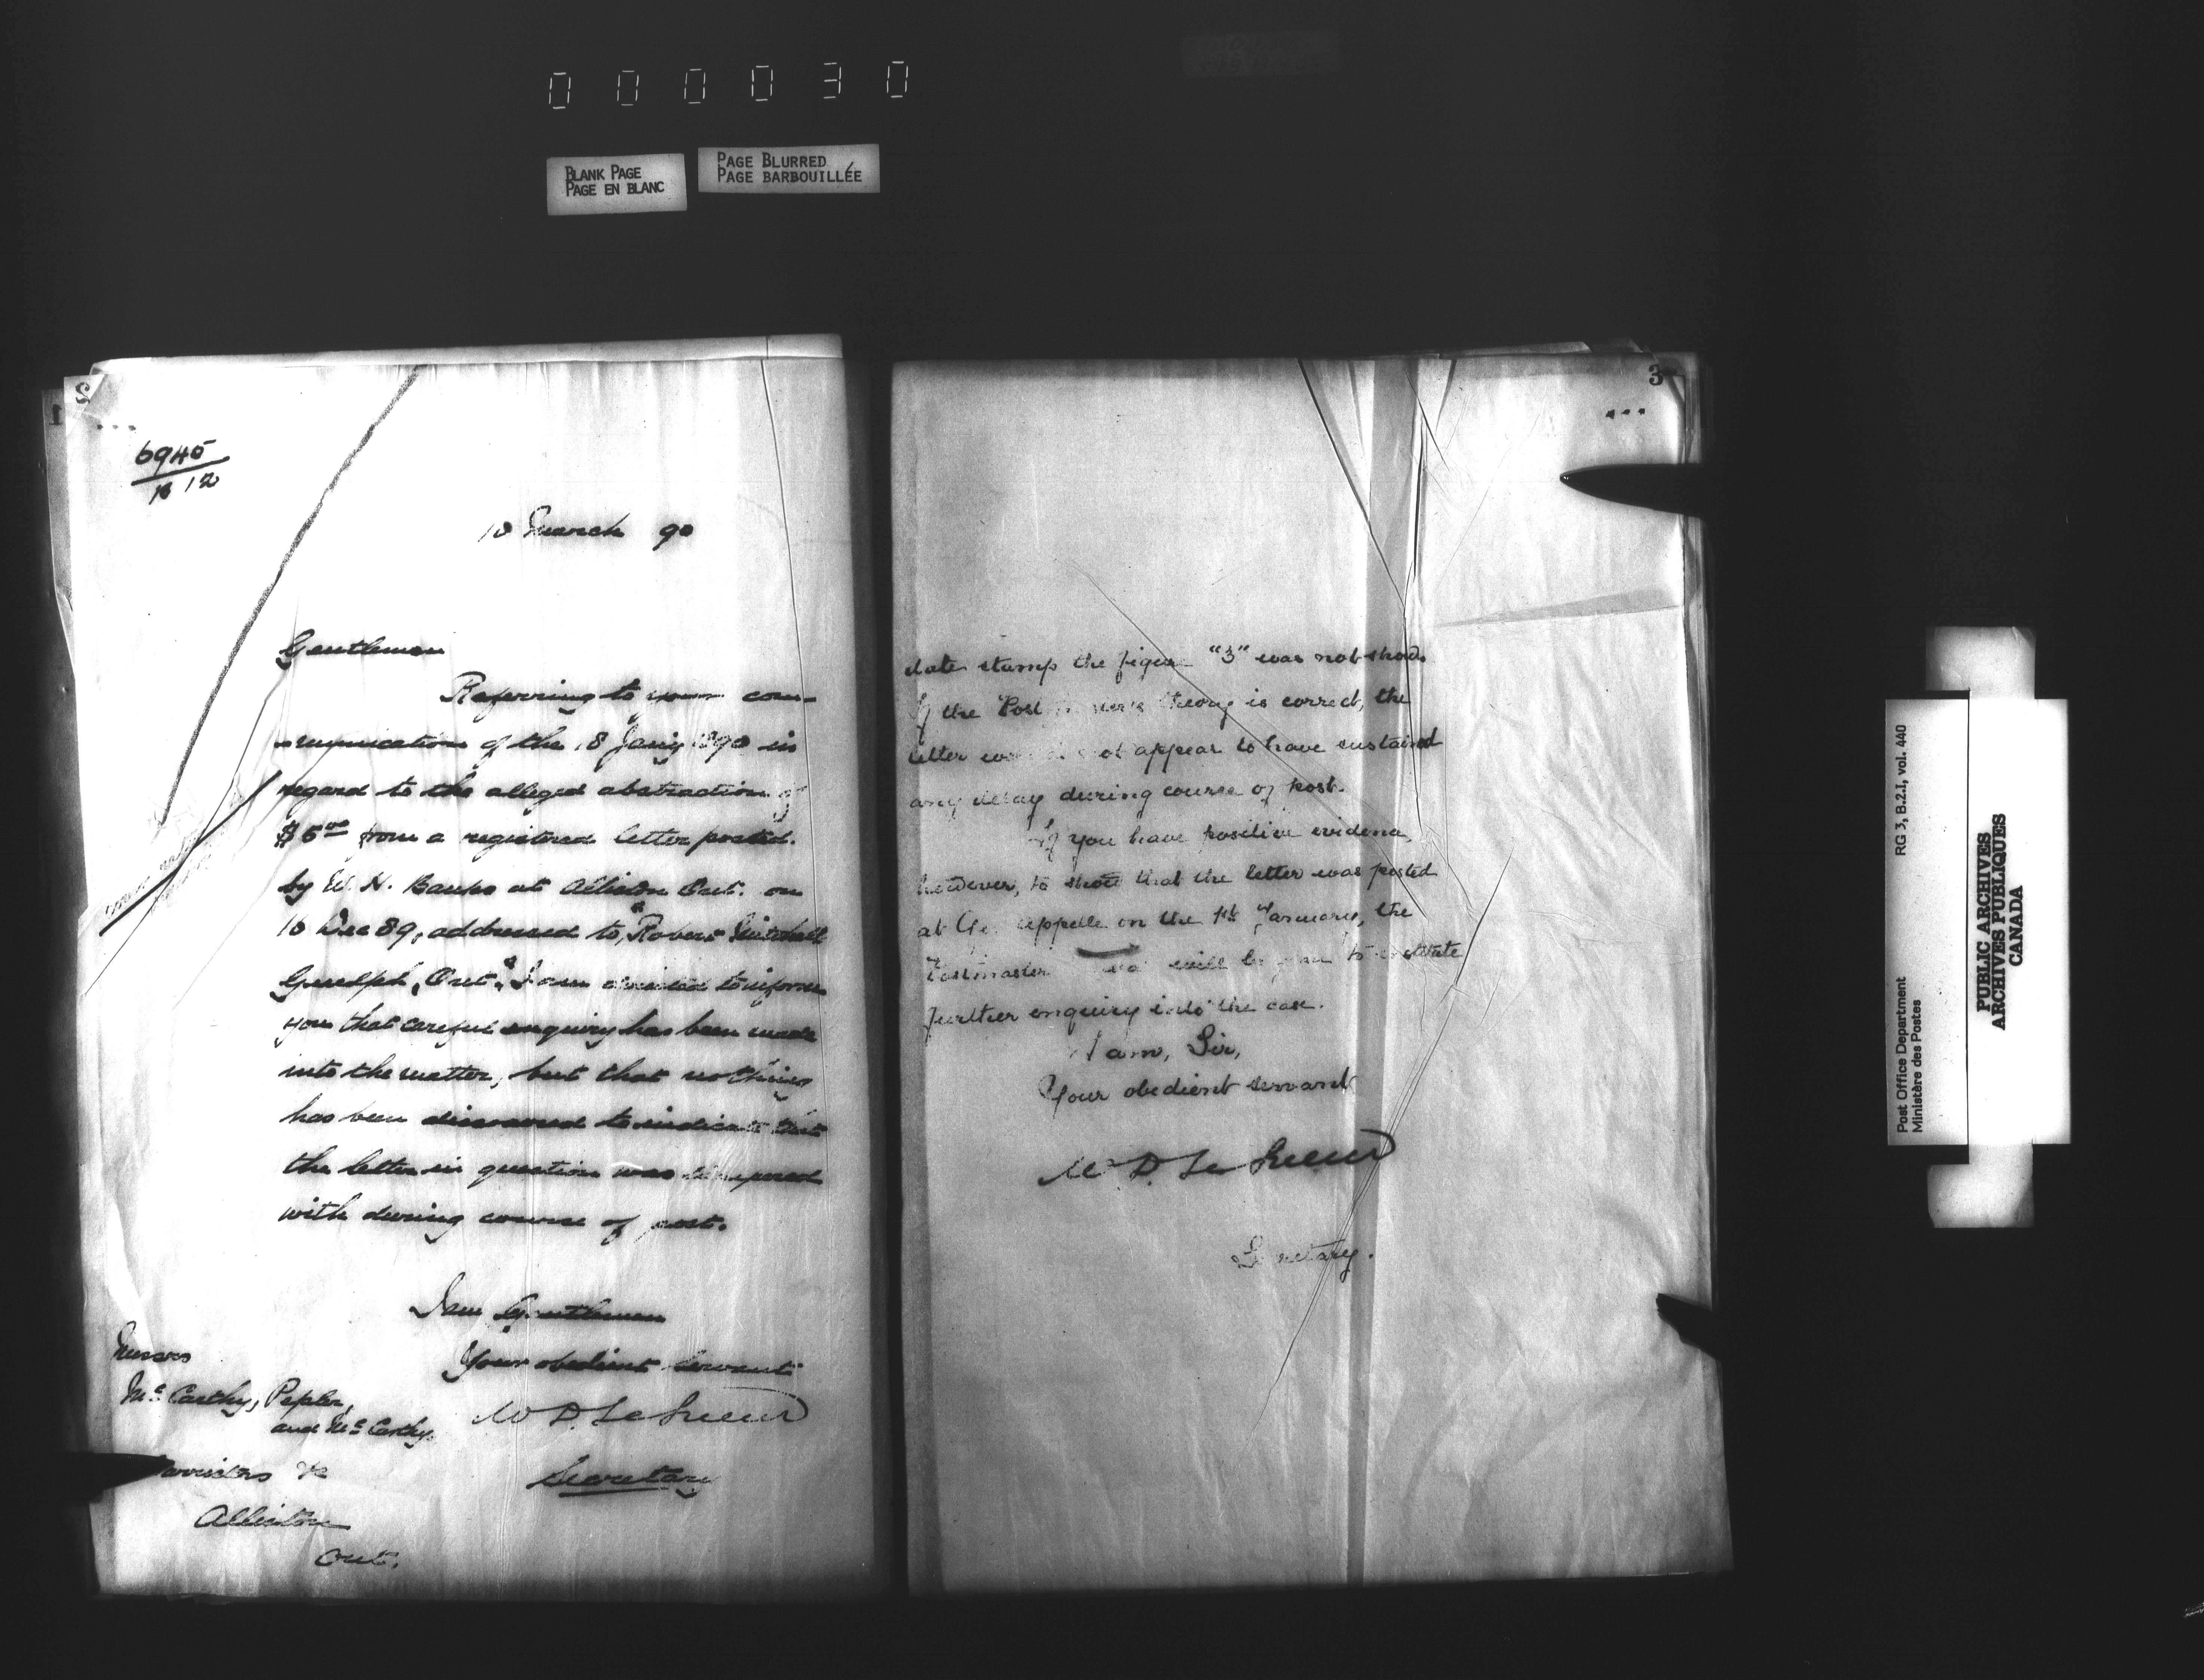 000030
BLANK PAGE
PAGE EN BLANC
PAGE BLURRED
PAGE BARBOUILLÉE
2
1
6945
12
10 March 90
Gentlemen
Referring to your com-
-munication of the 18 Jany 1890 in
regard to the alleged abstraction of
$5 00 from a registered letter posted
by W. H. Banks at Alliston Ont. on
16 Dec 89, addressed to "Robert Mitchell
Guelph, Ont." I am directed to inform
you that careful enquiry has been made
into the matter, but that nothing
has been discovered to indicate that
the letter in question was tampered
with during course of post.
I am Gentlemen
Your obedient servant
W D LeSueur
Secretary
Messrs
McCarthy, Pepler,
and McCarthy
Barristers &c
Alliston
Ont.
3
date stamp the figure "3" was not shown
If the Postmaster's theory is correct, the
letter would not appear to have sustained
any delay during course of post.
If you have positive evidence,
however, to show that the letter was posted
at Qu'Appelle on the 1st January, the
Postmaster will be to institute
further enquiry into the case.
I am, Sir,
Your obedient servant
W D LeSueur
Secretary.
Post Office Department RG 3, B.2.I, vol. 440
Ministère des Postes
PUBLIC ARCHIVES
ARCHIVES PUBLIQUES
CANADA